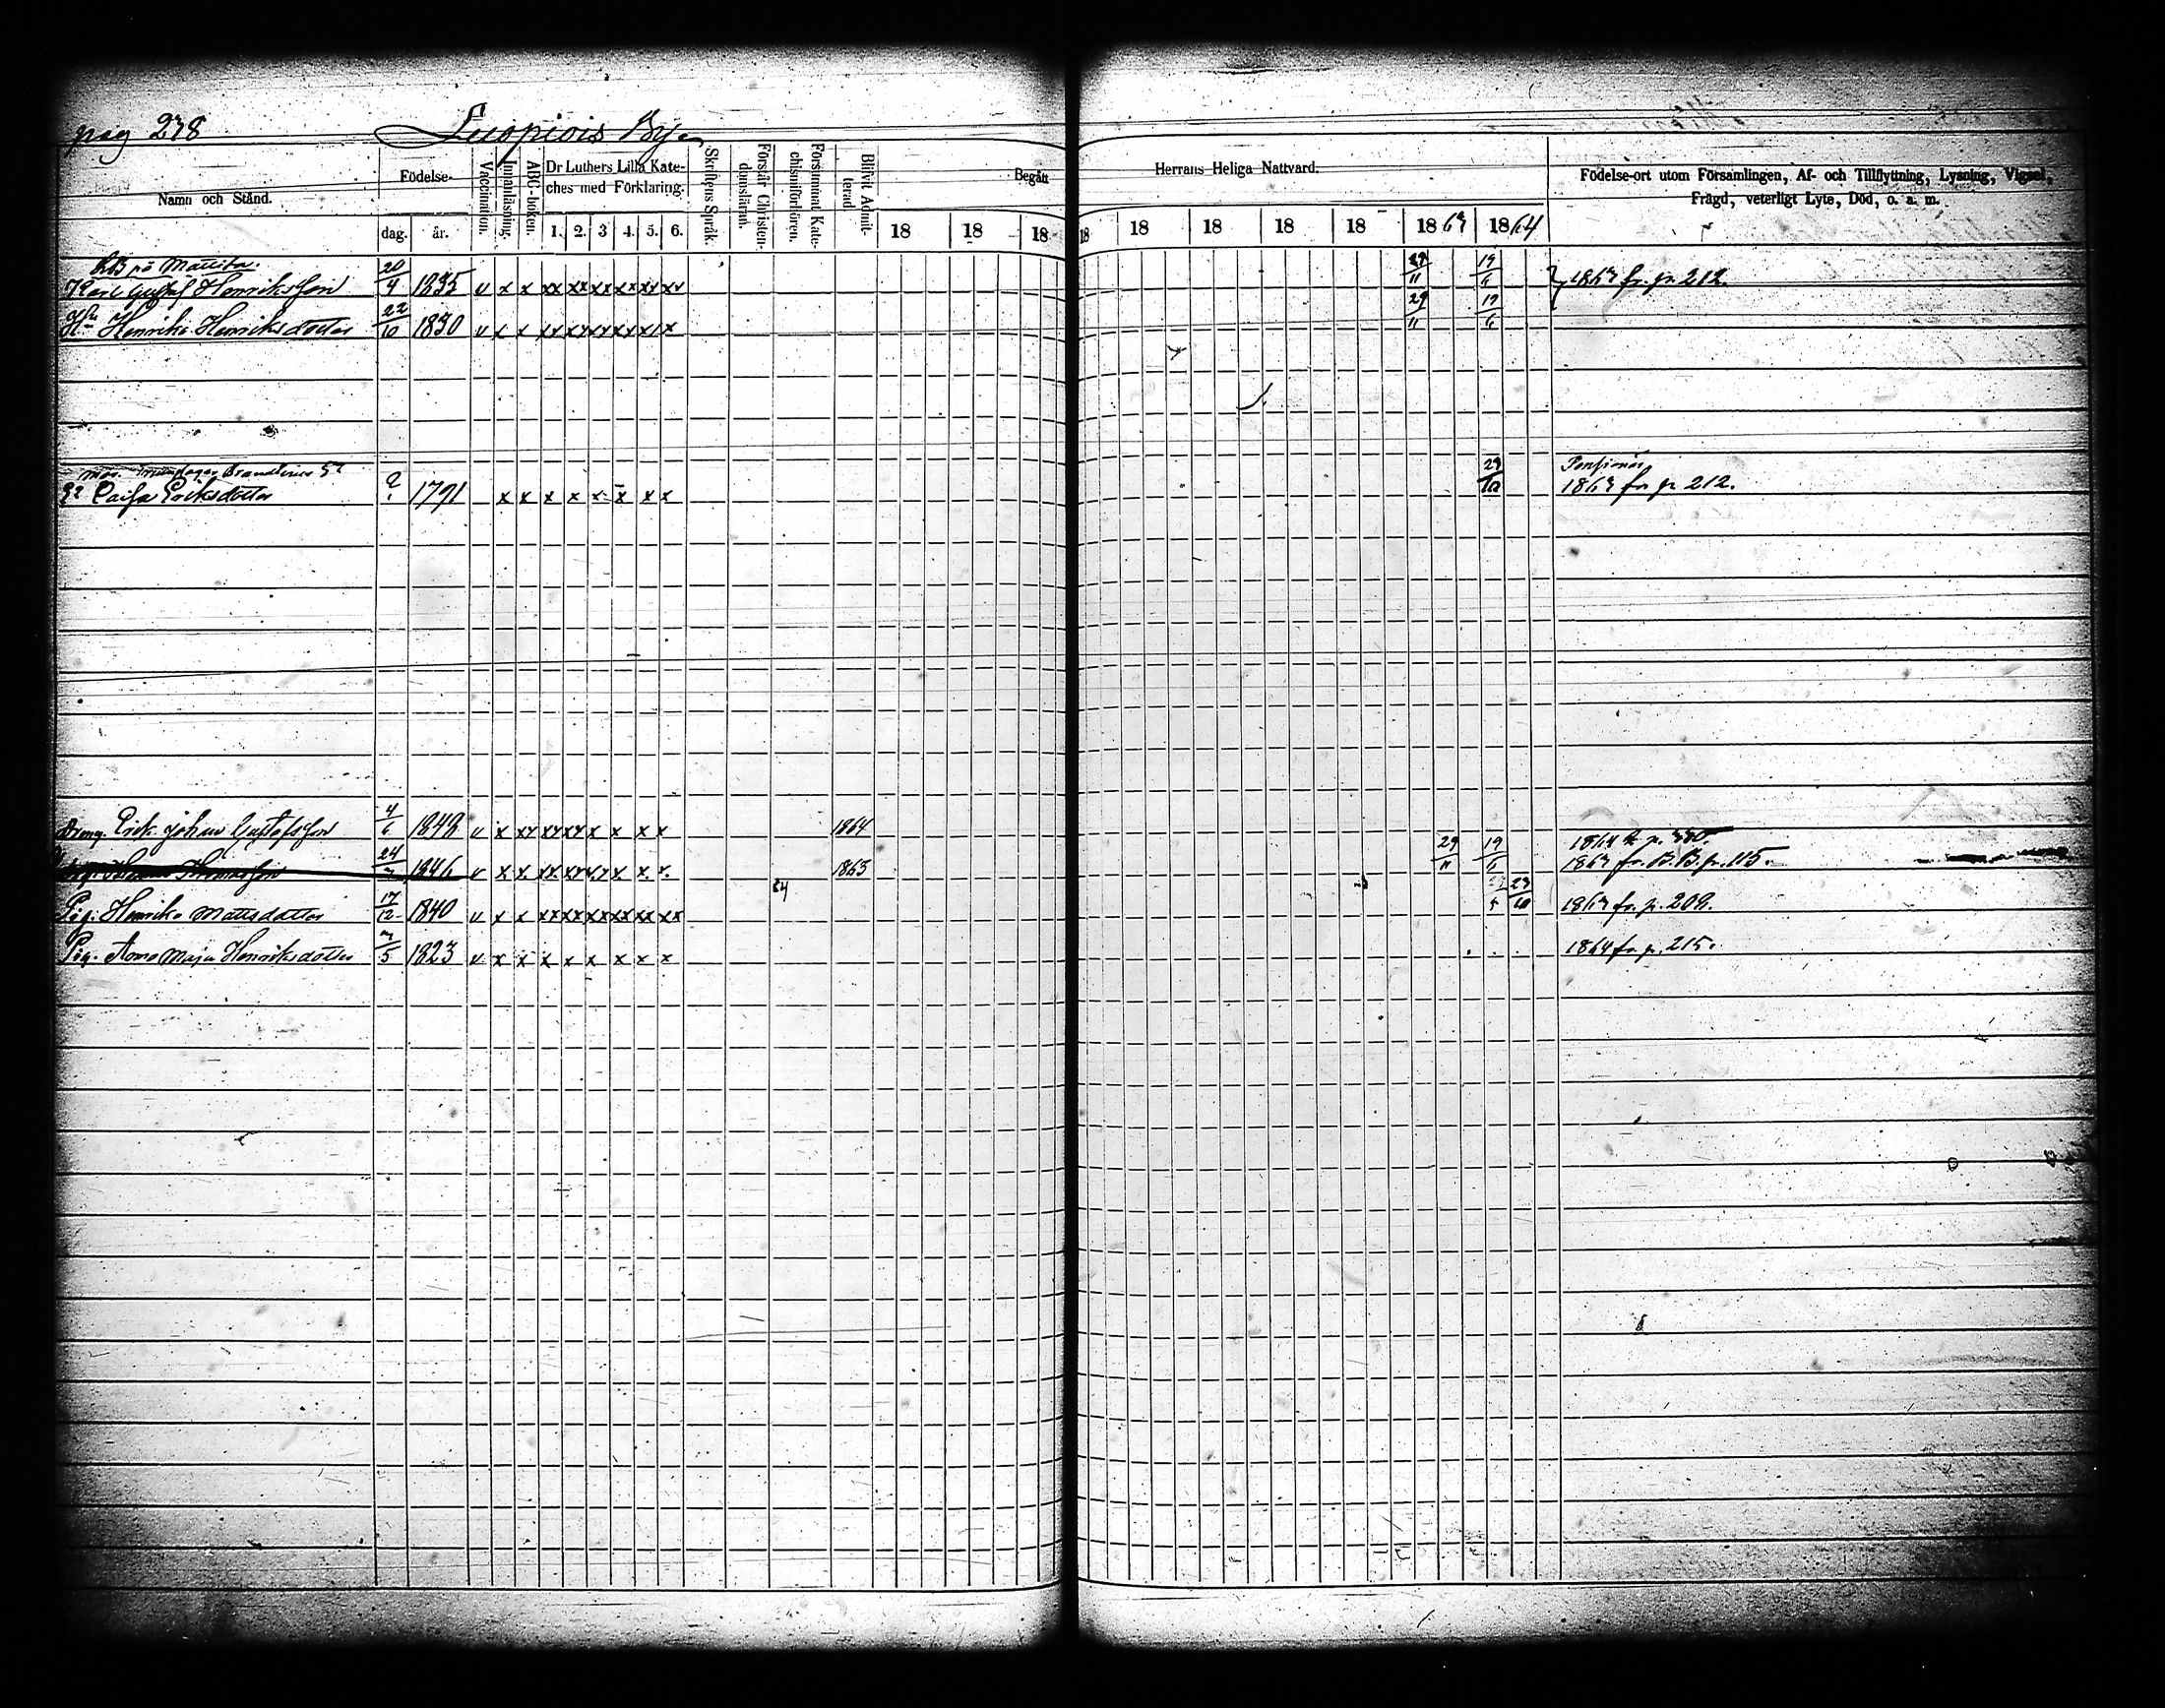 pag 238 Luopiois By.
Namn och Stånd.
Födelse-
dag. år.
Vaccination.
Innanläsning.
ABC-boken.
Dr Luthers Lilla Kate-
ches med Förklaring.
1. 2. 3 4. 5. 6.
Skriftens Språk.
Förstår Christen-
domsläran.
Försummat Kate-
chismiförhören.
Blifvit Admit-
terad
Begått Herrans Heliga Nattvard.
18 18 18 18 18 18 18 18 1863 1864
Födelse-ort utom Församlingen, Af- och Tillflyttning, Lysning, Vigsel,
Frägd, veterligt Lyte, Död, o. a. m.
på Mattila.
Karl Gustaf Henriksson 20/4 1835 v x x xx xx xx xx xx xx 29/11 19/6 1863 fr. p. 212.
Hu Henrika Henriksdotter 22/10 1830 v x x 29/11 19/6
Brandterus
Caisa Eriksdotter ? 1791 x x x x x x x x 29/10 1863 fr. p 212.
Dräng. Erik Johan Gustafsson 4/6 1848 v x 1864 1864 fr. p.
Thomasson 24 1846 v x x 1865 29/11 19/6 1863 fr. B.B. p. 115.
Pig. Henrika Mattsdotter 17/12 1840 v x x xx xx xx xx xx xx 23/10 1863 fr. p. 209.
Pig. Anna Maja Henriksdotter 3/5 1823 v x x x x x x x x 1864 fr. p. 215.